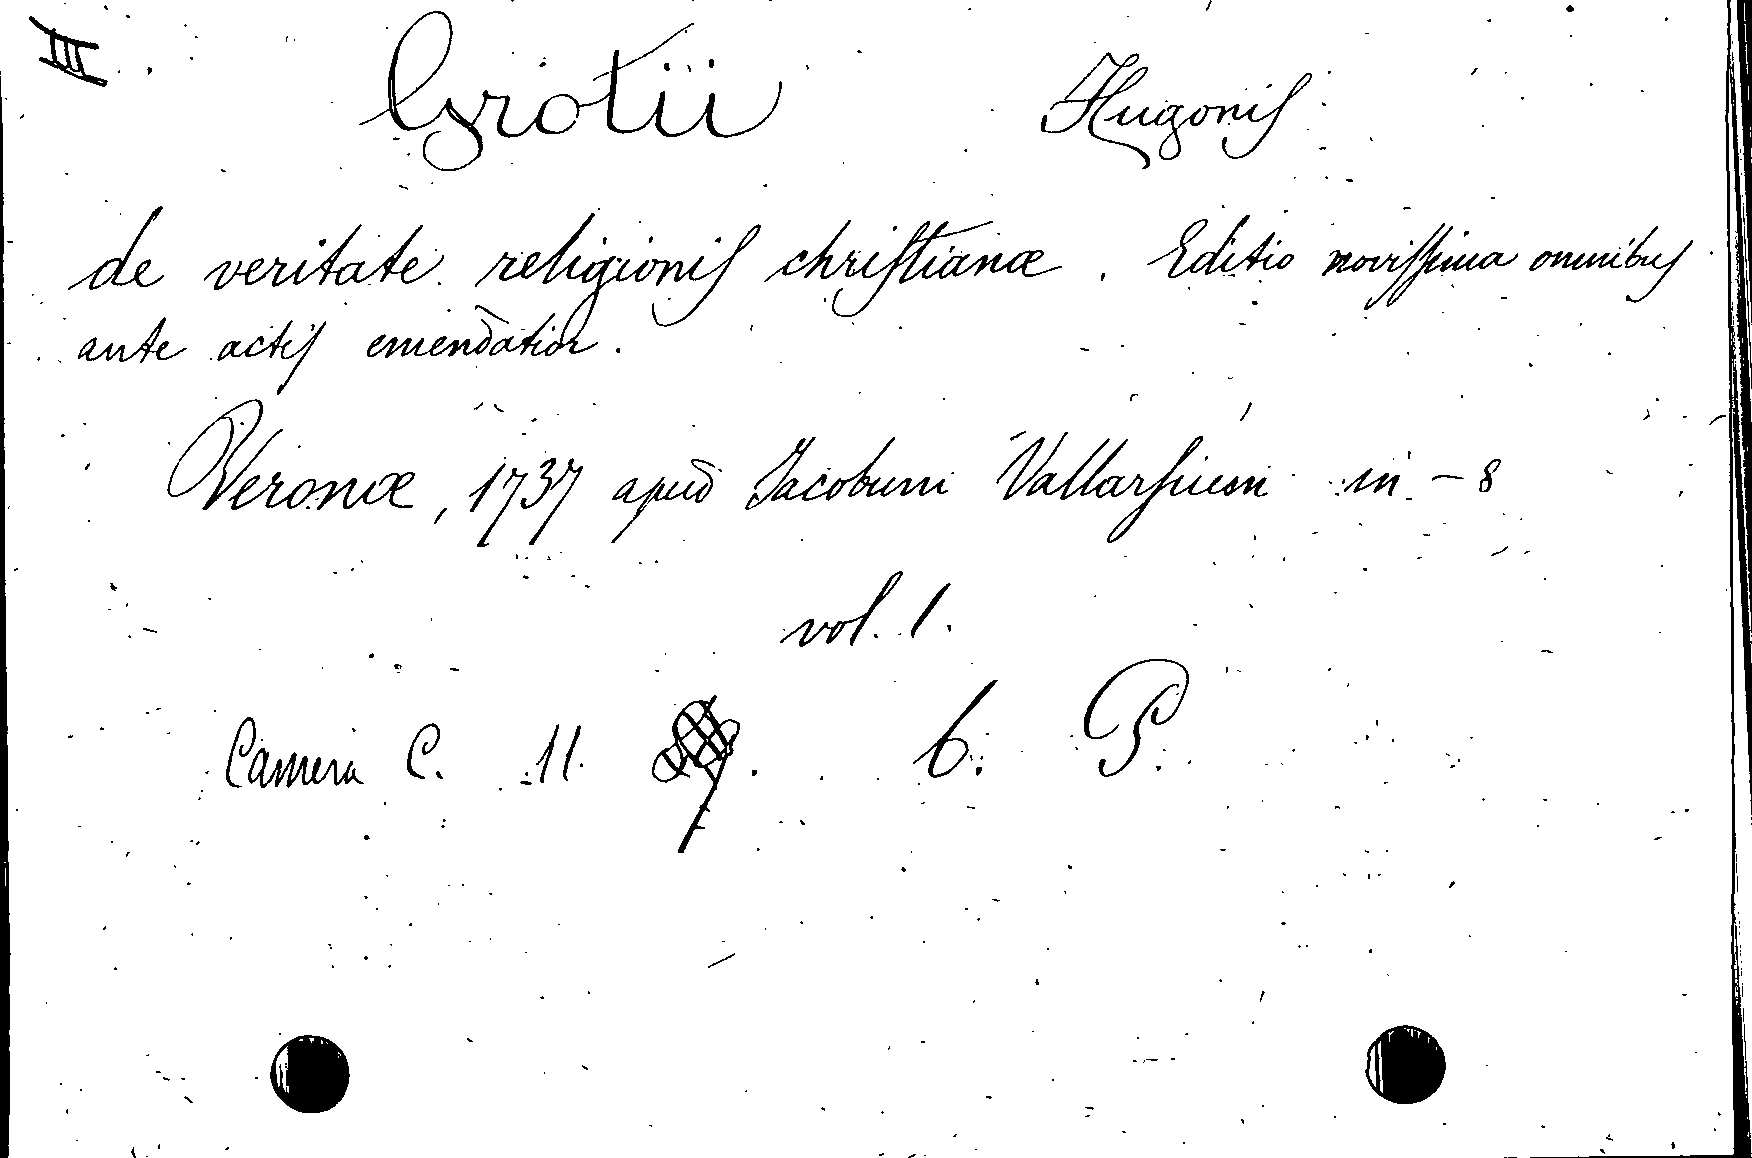 III
Grotii Hugonis
de veritate religionis christianæ. Editio novissima omnibus
ante actis emendatior.
Veronæ, 1737 apud Jacobum Vallarsium in-8
vol. 1.
Camera C. 11. 6. P.